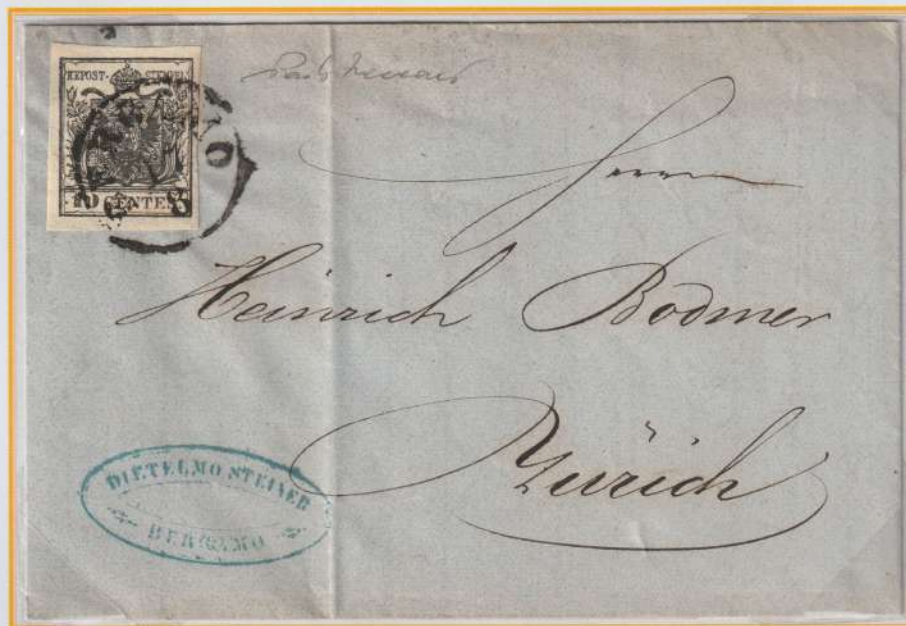 KKPOST-STEMPEL
10 CENTES
BERGAMO
Herrn
Heinrich Bodmer
Zürich
DIETELMO STEINER
BERGAMO